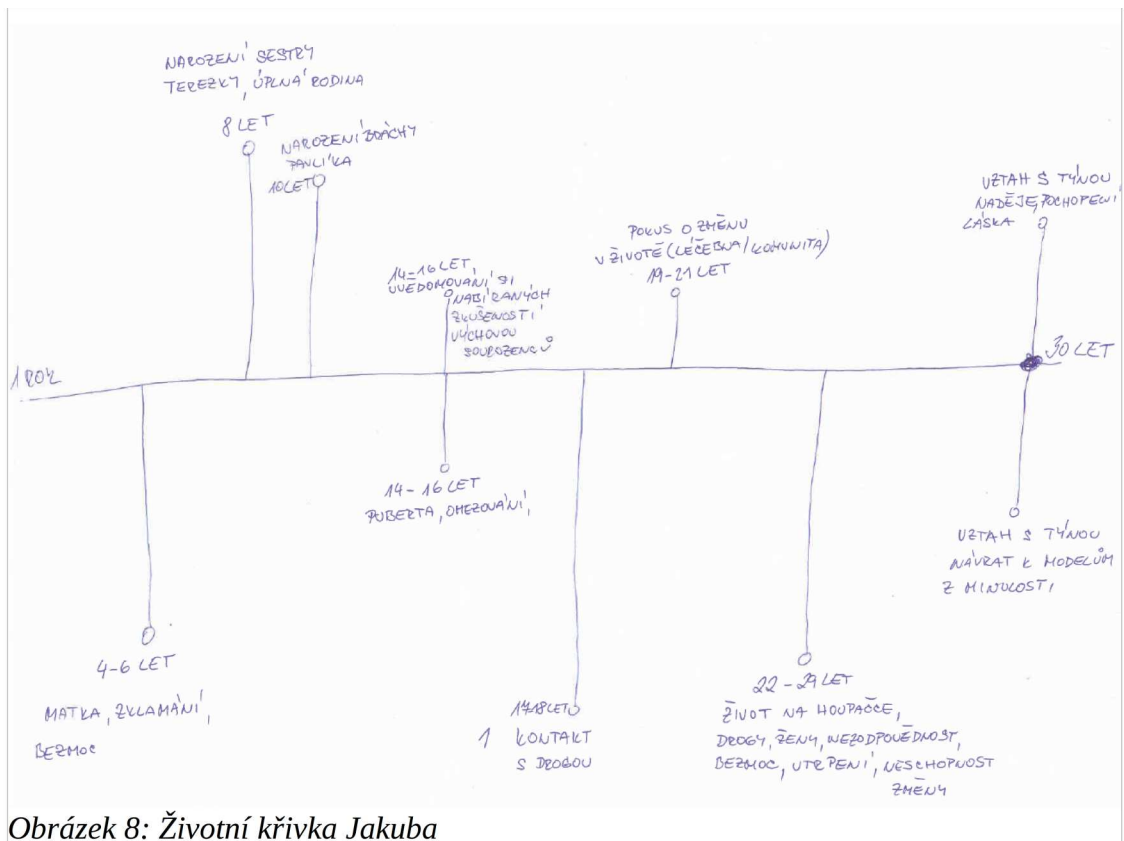 NAROZENÍ SESTRY
TEREZKY, ÚPLNÁ RODINA
8 LET
NAROZENÍ BRÁCHY
PAVLÍKA
10 LET
14-16 LET,
UVĚDOMOVÁNÍ SI
NABÍRANÝCH
ZKUŠENOSTÍ
VÝCHOVOU
SOUROZENCŮ
POKUS O ZMĚNU
V ŽIVOTĚ (LÉČEBNA/KOMUNITA)
19-21 LET
VZTAH S TÝNOU
NADĚJE, POCHOPENÍ
LÁSKA
1 ROK
30 LET
14-16 LET
PUBERTA, OMEZOVÁNÍ,
VZTAH S TÝNOU
NÁVRAT K MODELŮM
Z MINULOSTI,
4-6 LET
MATKA, ZKLAMÁNÍ,
BEZMOC
17-18 LET
1 KONTAKT
S DROGOU
22-29 LET
ŽIVOT NA HOUPAČCE,
DROGY, ŽENY, NEZODPOVĚDNOST,
BEZMOC, UTRPENÍ, NESCHOPNOST
ZMĚNY
Obrázek 8: Životní křivka Jakuba